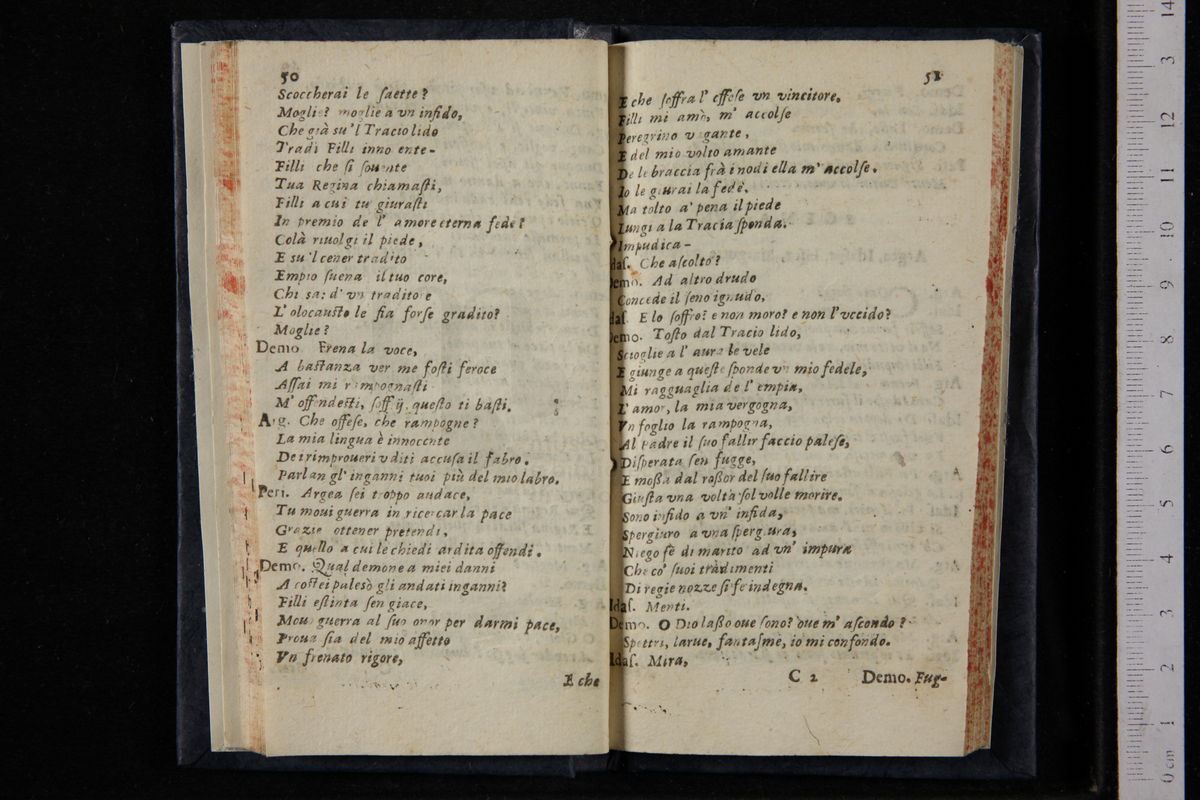 50
Scoccherai le ſaette?
Moglie? moglie a vn infido,
Che già su'l Tracio lido
Tradì Filli inno ente-
Filli che ſi ſouente
Tua Regina chiamaſti,
Filli a cui tu giuraſti
In premio de l' amore eterna fede?
Colà riuolgi il piede,
E su'l cener tradito
Empio ſuena il tuo core,
Chi sa? d' vn traditore
L' olocauſto le fia forſe gradito?
Moglie?
Demo Frena la voce,
A baſtanza ver me foſti feroce
Aſſai mi rampognaſti
M' offendeſti, ſoffij, queſto ti baſti.
Arg. Che offeſe, che rampogne?
La mia lingua è innocente
De i rimproueri vditi accuſa il fabro.
Parlan gl' inganni tuoi più del mio labro.
Peri. Argea ſei troppo audace,
Tu moui guerra in ricercar la pace
Grazie ottener pretendi,
E quello a cui le chiedi ardita offendi.
Demo. Qual demone a miei danni
A coſtei palesò gli andati inganni?
Filli eſtinta ſen giace,
Moue guerra al ſuo onor per darmi pace,
Proua ſia del mio affetto
Vn frenato rigore,
E che
51
E che ſoffra l' offeſe vn vincitore.
Filli mi amò, m' accolſe
Peregrino vagante,
E del mio volto amante
De le braccia frà i nodi ella m' accolſe.
Io le giurai la fedè.
Ma tolto a' pena il piede
Lungi a la Tracia ſponda.
Impudica-
Idaſ. Che aſcolto?
Demo. Ad altro drudo
Concede il ſeno ignudo,
Idaſ. E lo ſoffro? e non moro? e non l'vccido?
Demo. Toſto dal Tracio lido,
Scioglie a l' aura le vele
E giunge a queſte ſponde vn mio fedele,
Mi ragguaglia de l' empia,
L' amor, la mia vergogna,
Vn foglio la rampogna,
Al Padre il ſuo fallir faccio paleſe,
Diſperata ſen fugge,
E moſſa dal roſſor del ſuo fallire
Giuſta vna volta ſol volle morire.
Sono infido a vn' infida,
Spergiuro a vna ſpergiura,
Niego fè di marito ad vn' impura
Che co' ſuoi tradimenti
Di regie nozze ſi fe indegna.
Idaſ. Menti.
Demo. O Dio laſſo oue ſono? oue m' aſcondo?
Spettri, larue, fantaſme, io mi confondo.
Idaſ. Mira,
C 2 Demo. Fug-